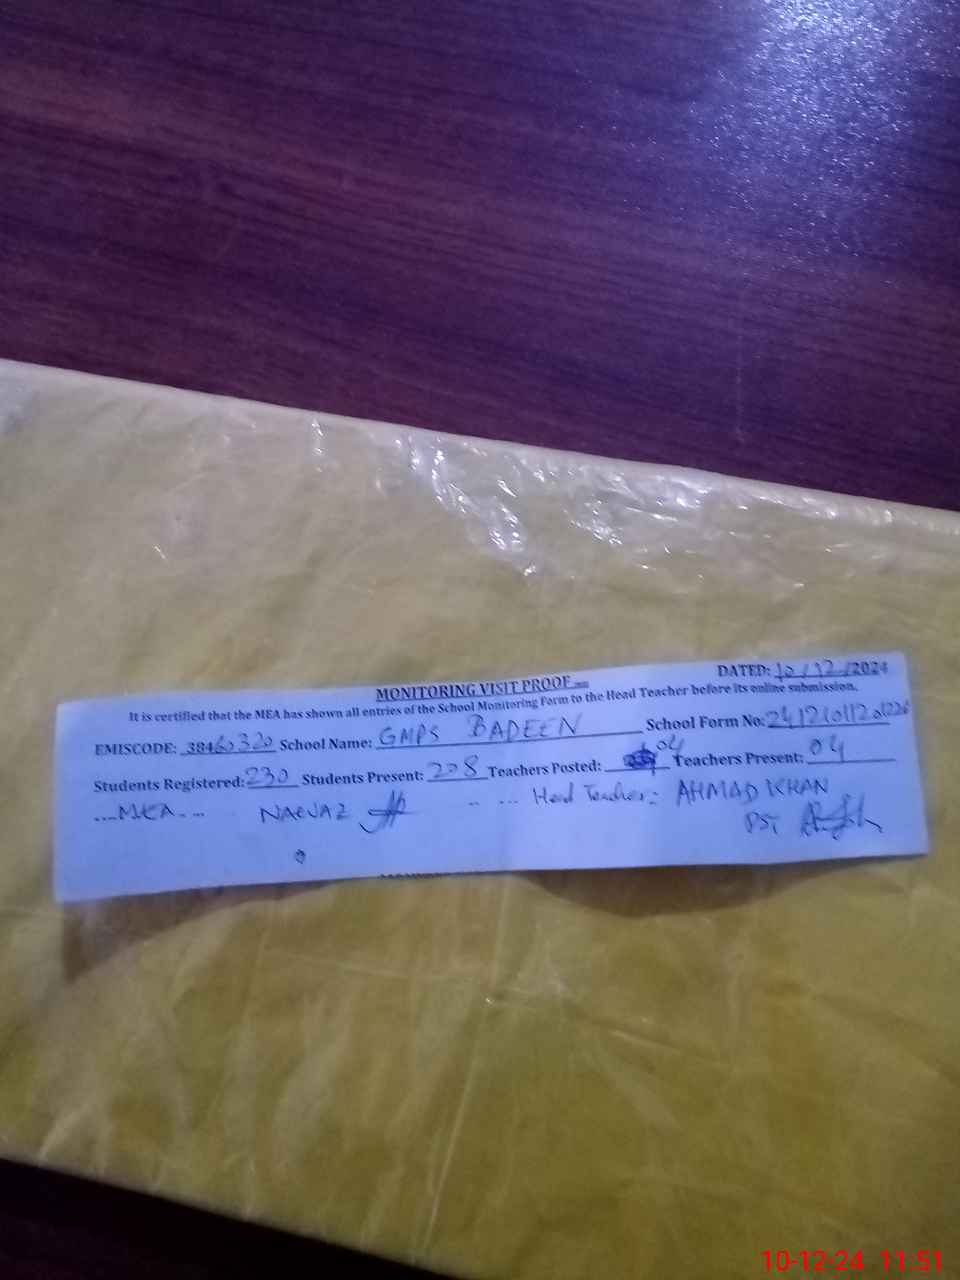 MONITORING VISIT PROOF
DATED: 10/12/2024
It is certified that the MEA has shown all entries of the School Monitoring Form to the Head Teacher before its online submission.
EMISCODE: 38460320 School Name: GMPS BADEEN School Form No:
Students Registered: 230 Students Present: 208 Teachers Posted: 04 Teachers Present: 04
...MEA.... NAWAZ .. ... Head Teacher: AHMAD KHAN
PST
10-12-24 11:51